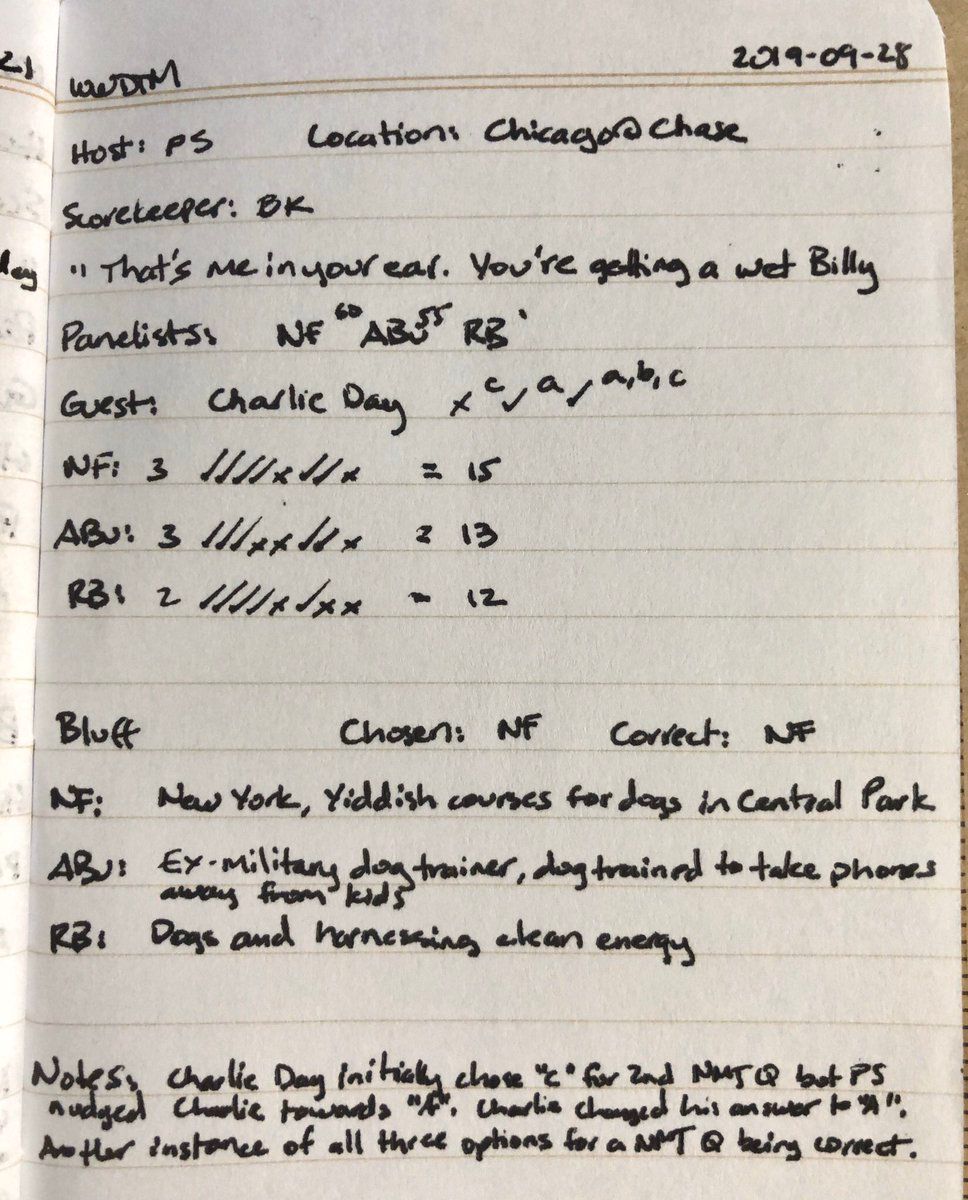 21
WWDTM 2019-09-28
Host: PS Location: Chicago @ Chase
Scorekeeper: BK
ley "That's me in your ear. You're getting a wet Billy
Panelists: NF 60 ABu 55 RB 1
Guest: Charlie Day x c ✓ a ✓ a, b, c
NF: 3 ////x//x = 15
ABu: 3 ///xx//x = 13
RB: 2 ////x/xx = 12
Bluff Chosen: NF Correct: NF
NF: New York, Yiddish courses for dogs in Central Park
ABu: Ex-military dog trainer, dog trained to take phones
away from kids
RB: Dogs and harnessing clean energy
Notes: Charlie Day initially chose "c" for 2nd NMJ Q but PS
nudged Charlie towards "A". Charlie changed his answer to "A".
Another instance of all three options for a NMJ Q being correct.